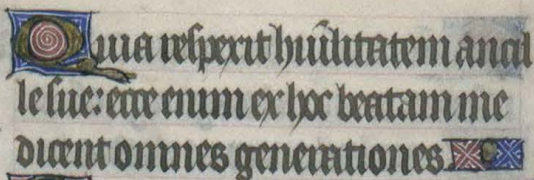 Quia respexit hūilitatem ancil
le sue: ecce enim ex hoc beatam me
dicent omnes generationes.